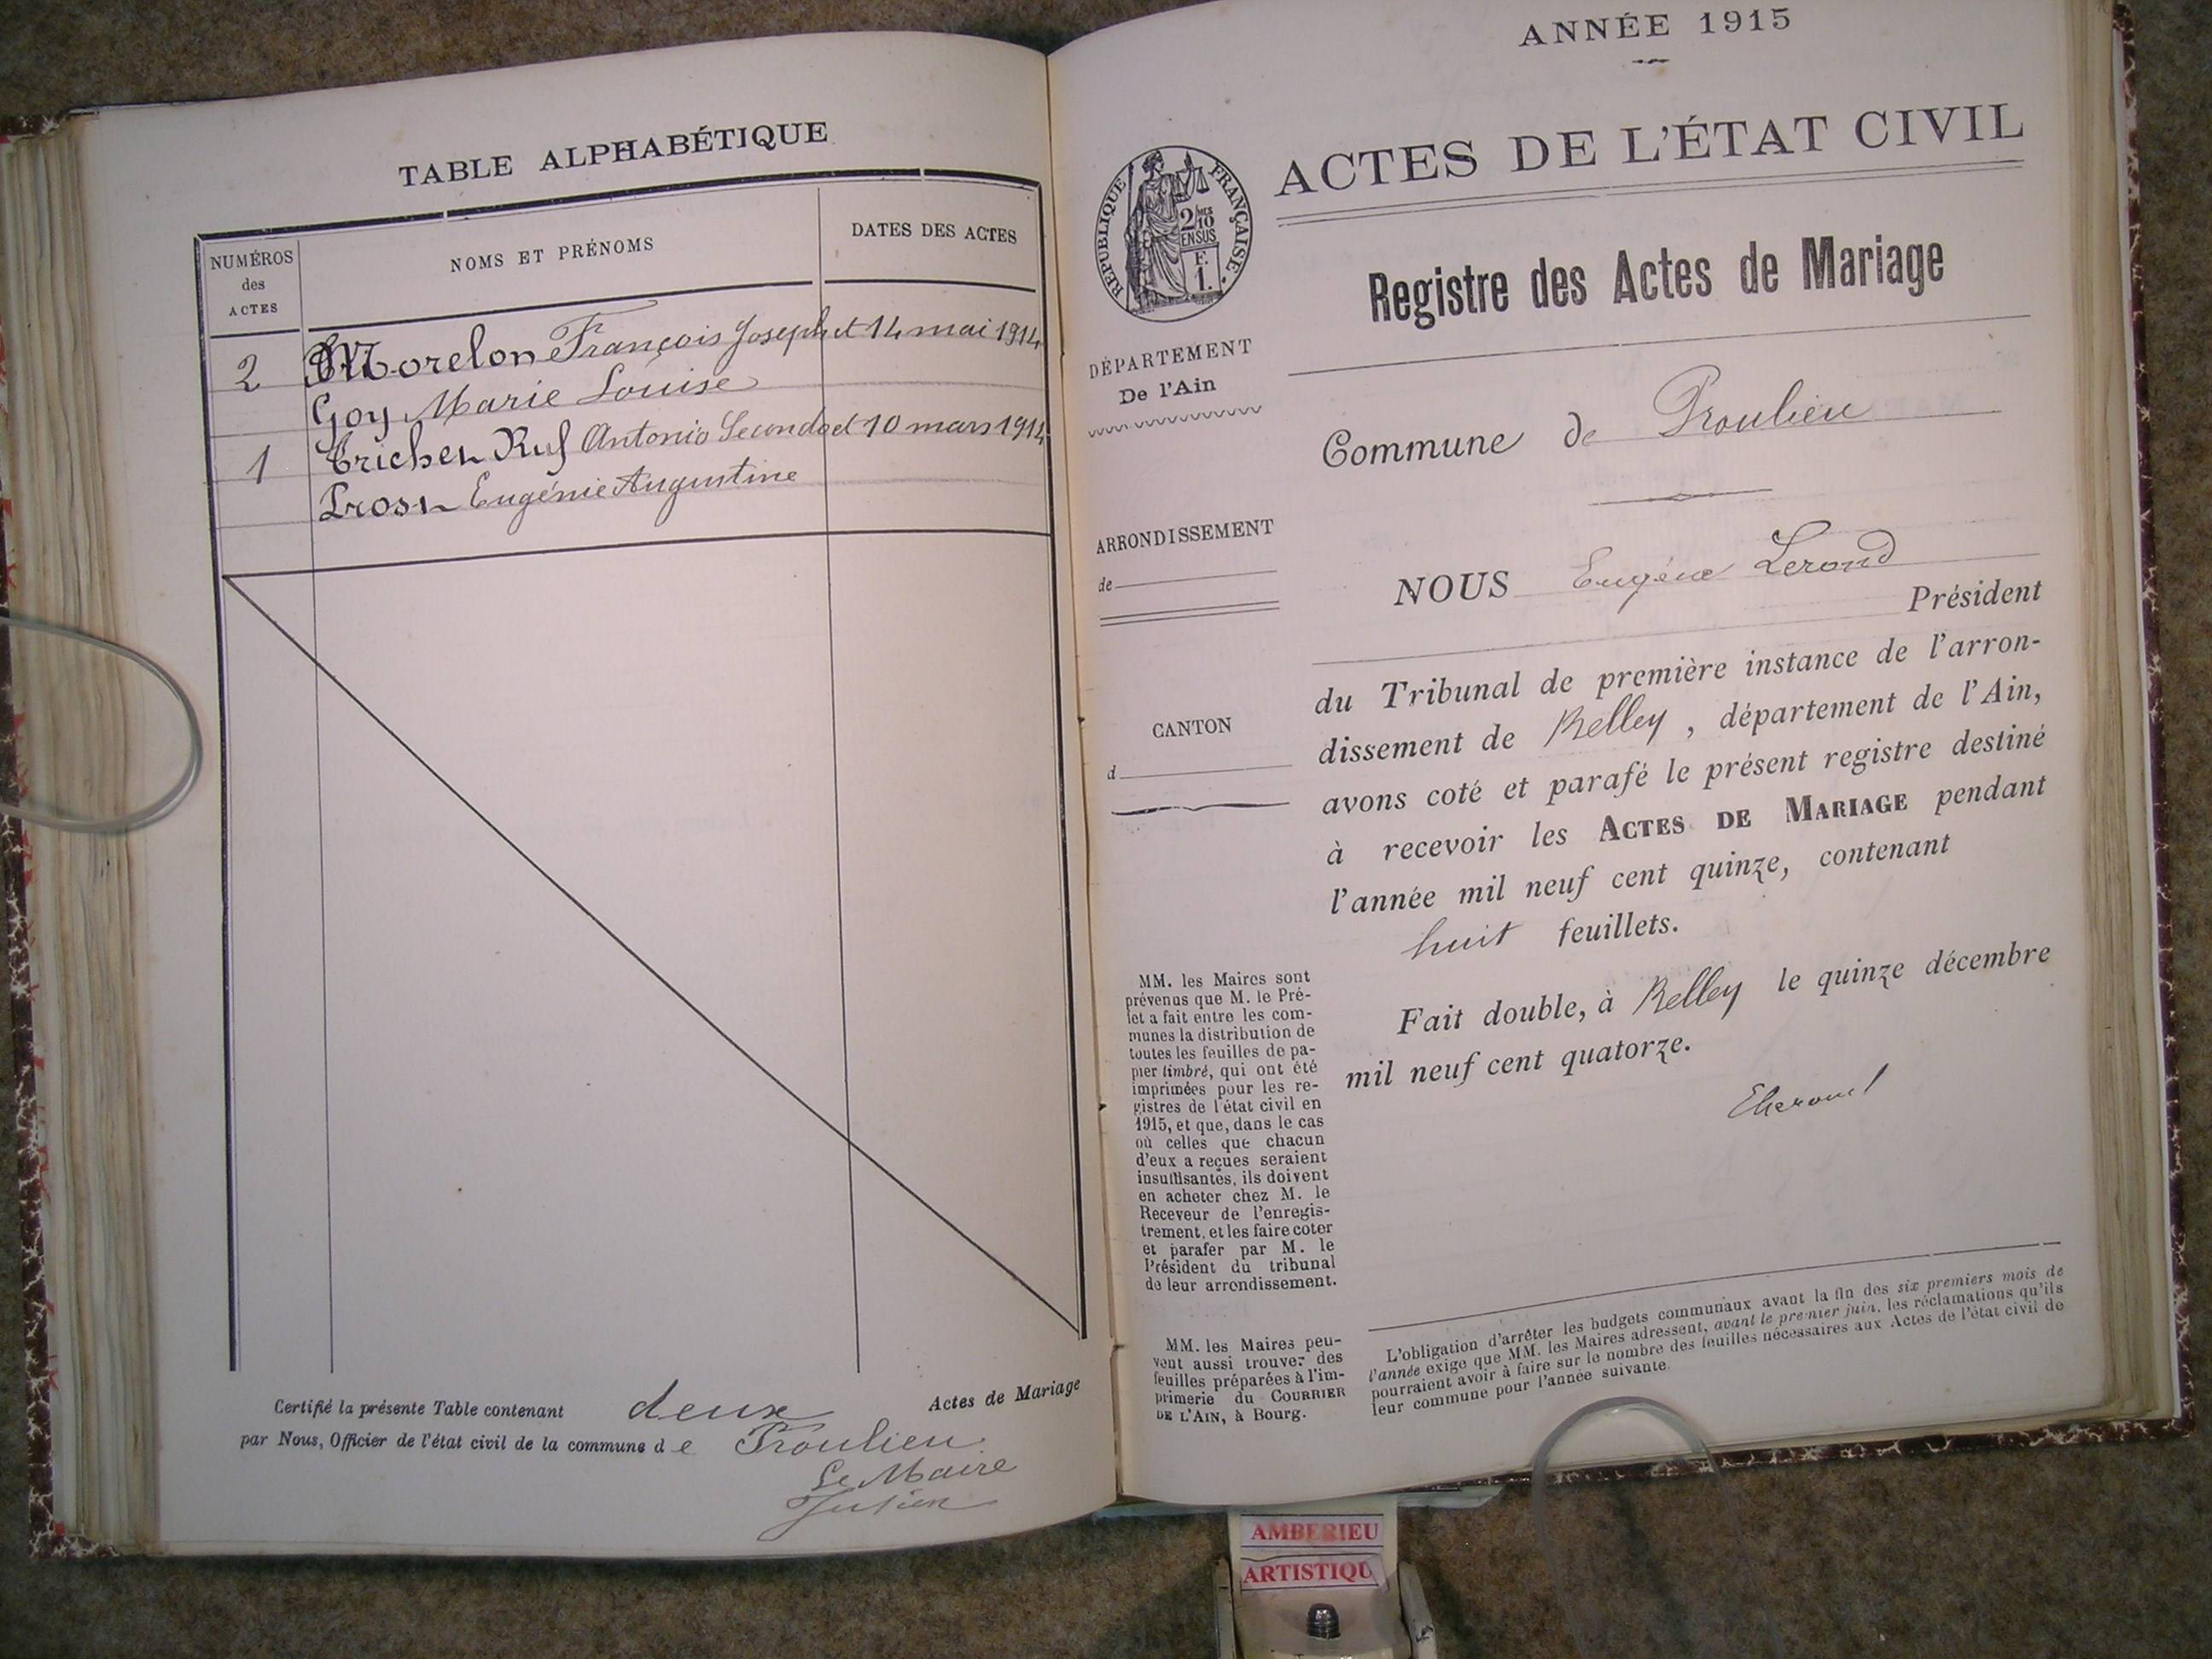 TABLE ALPHABÉTIQUE
NUMÉROS
des
ACTES
NOMS ET PRÉNOMS
DATES DES ACTES
2 Morelon François Joseph et 14 mai 1914
Goy Marie Louise
1 Antonio Secundo et 10 mars 1914
Eugénie Augustine
Certifié la présente Table contenant deux Actes de Mariage
par Nous, Officier de l'état civil de la commune de Proulieu.
Le Maire
ANNÉE 1915
ACTES DE L'ÉTAT CIVIL
RÉPUBLIQUE FRANÇAISE.
2 MES
10
EN SUS
F.
1.
Registre des Actes de Mariage
DÉPARTEMENT
De l'Ain
Commune de Proulieu
ARRONDISSEMENT
de
NOUS Eugène Lerond
Président
CANTON
d
du Tribunal de première instance de l'arron-
dissement de Belley, département de l'Ain,
avons coté et parafé le présent registre destiné
à recevoir les ACTES DE MARIAGE pendant
l'année mil neuf cent quinze, contenant
huit feuillets.
Fait double, à Belley le quinze décembre
mil neuf cent quatorze.
MM. les Maires sont
prévenus que M. le Pré-
fet a fait entre les com-
munes la distribution de
toutes les feuilles de pa-
pier timbré, qui ont été
imprimées pour les re-
gistres de l'état civil en
1915, et que, dans le cas
où celles que chacun
d'eux a reçues seraient
insuffisantes, ils doivent
en acheter chez M. le
Receveur de l'enregis-
trement, et les faire coter
et parafer par M. le
Président du tribunal
de leur arrondissement.
MM. les Maires peu-
vent aussi trouver des
feuilles préparées à l'im-
primerie du COURRIER
DE L'AIN, à Bourg.
L'obligation d'arrêter les budgets communaux avant la fin des six premiers mois de
l'année exige que MM. les Maires adressent, avant le premier juin, les réclamations qu'ils
pourraient avoir à faire sur le nombre des feuilles nécessaires aux Actes de l'état civil de
leur commune pour l'année suivante.
AMBERIEU
ARTISTIQU